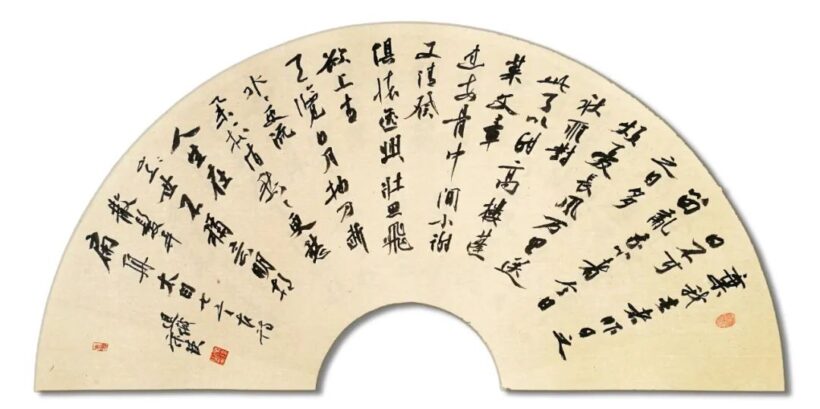 棄我去者昨日之
日不可
留亂我心者今日
之日多
煩憂長風万里送
秋雁對
此可以酣高樓蓬
莱文章
建安骨中间小謝
又清發
俱懷逸興壮思飛
欲上青
天覽明月抽刀断
水〻更流
舉杯消愁〻更愁
人生在
世不稱意明朝
散髮弄
扁舟 太白七言古詩